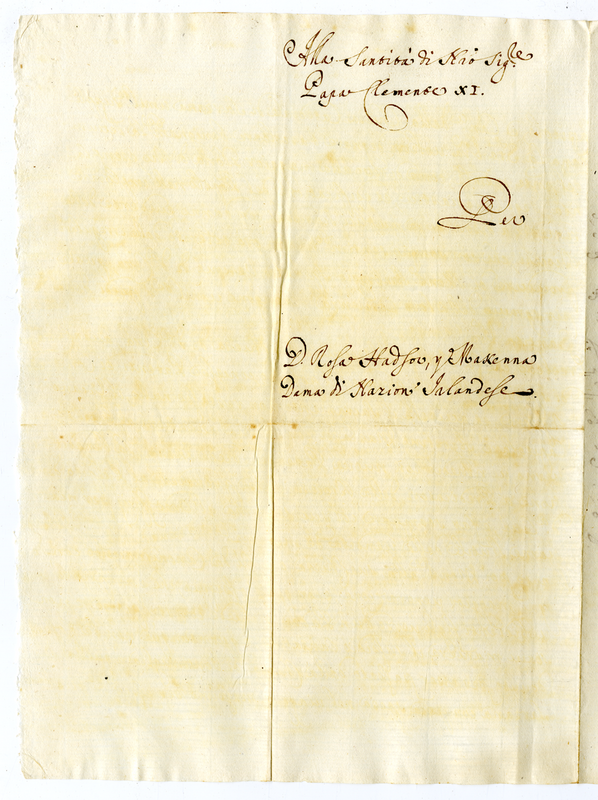 Alla Santità di Nrõ Sigre
Papa Clemente XI.
Per
D. Rosa Hadsor, y Makenna
Dama di Nazion' Irlandese.